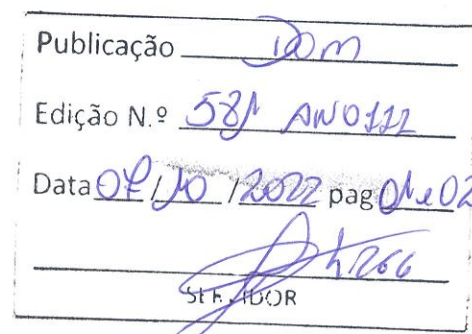 Publicação DOM
Edição N.º 581 ANO III
Data 07/10/2022 pag 01 e 02
SERVIDOR